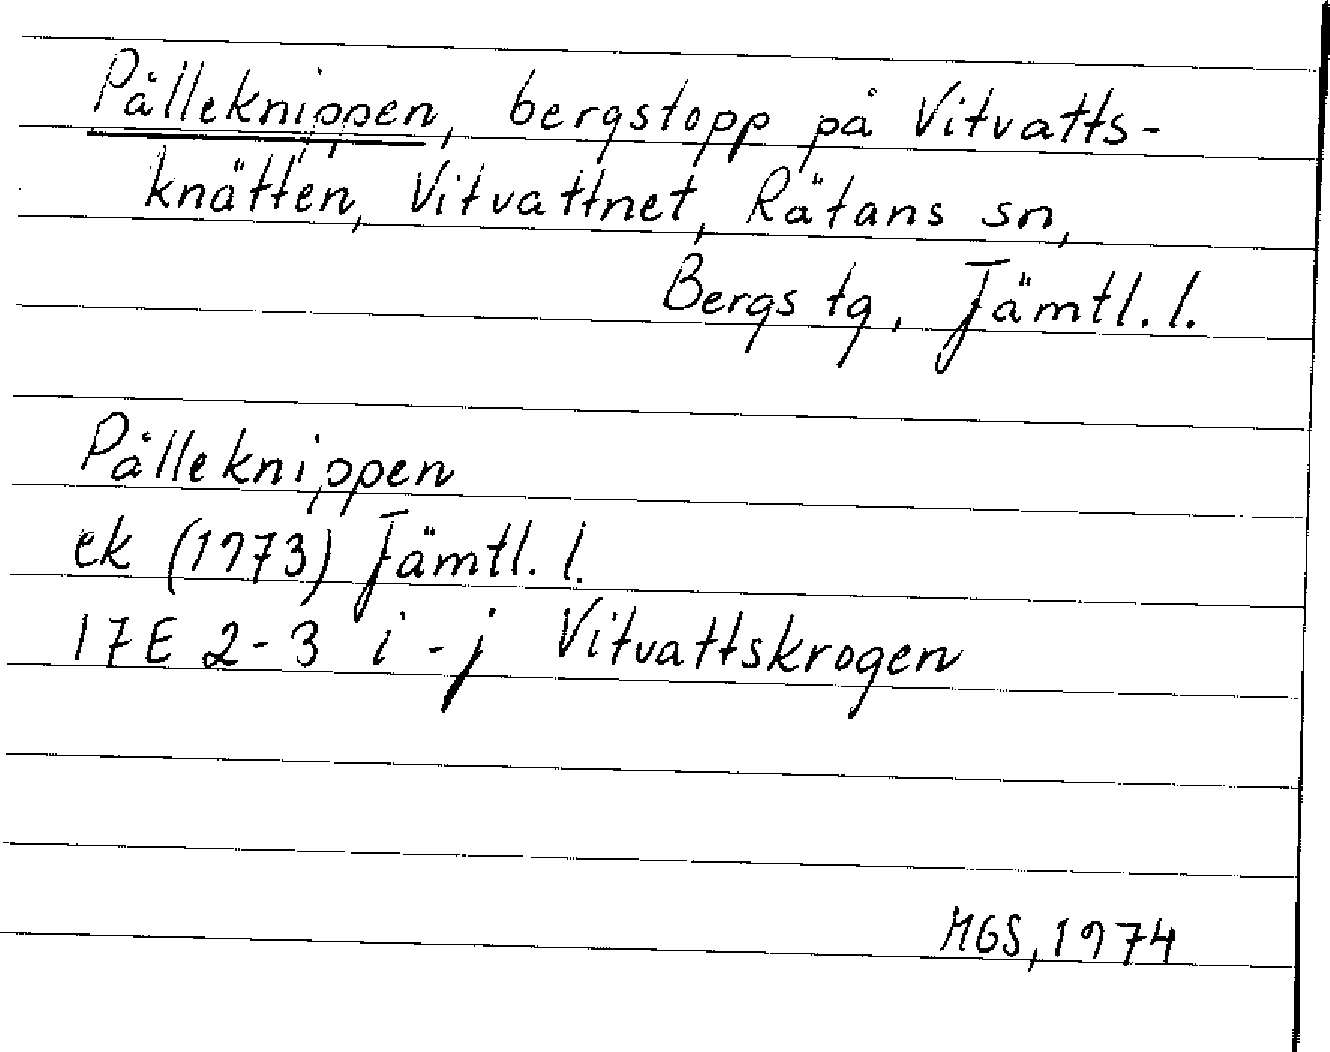 Pålleknippen, bergstopp på Vitvatts-
knätten, Vitvattnet, Rätans sn,
Bergs tg, Jämtl. l.
Pålleknippen
ek (1973) Jämtl. l.
17E 2-3 i-j Vitvattskrogen
MGS, 1974